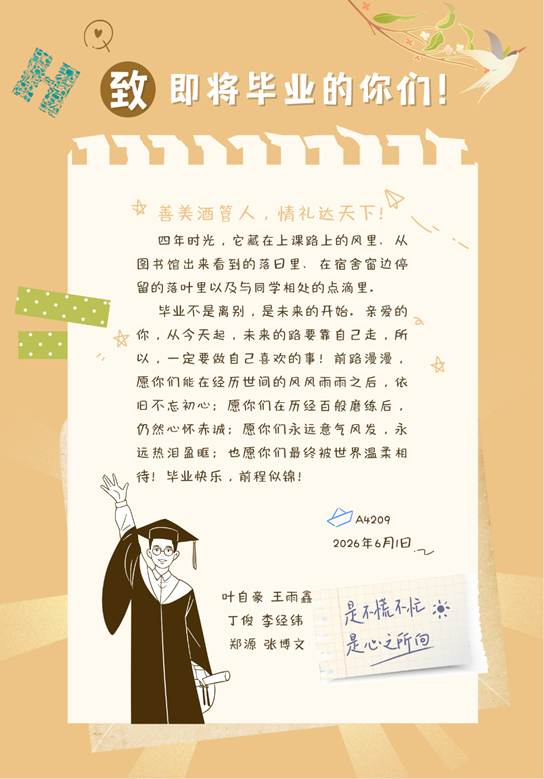 致 即将毕业的你们!
善美酒管人，情礼达天下!
四年时光，它藏在上课路上的风里、从
图书馆出来看到的落日里、在宿舍窗边停
留的落叶里以及与同学相处的点滴里。
毕业不是离别，是未来的开始。亲爱的
你，从今天起，未来的路要靠自己走，所
以，一定要做自己喜欢的事! 前路漫漫，
愿你们能在经历世间的风风雨雨之后，依
旧不忘初心；愿你们在历经百般磨练后，
仍然心怀赤诚；愿你们永远意气风发，永
远热泪盈眶；也愿你们最终被世界温柔相
待! 毕业快乐，前程似锦!
A4209
2026年6月1日
叶自豪 王雨鑫
丁俊 李经纬
郑源 张博文
是不慌不忙
是心之所向